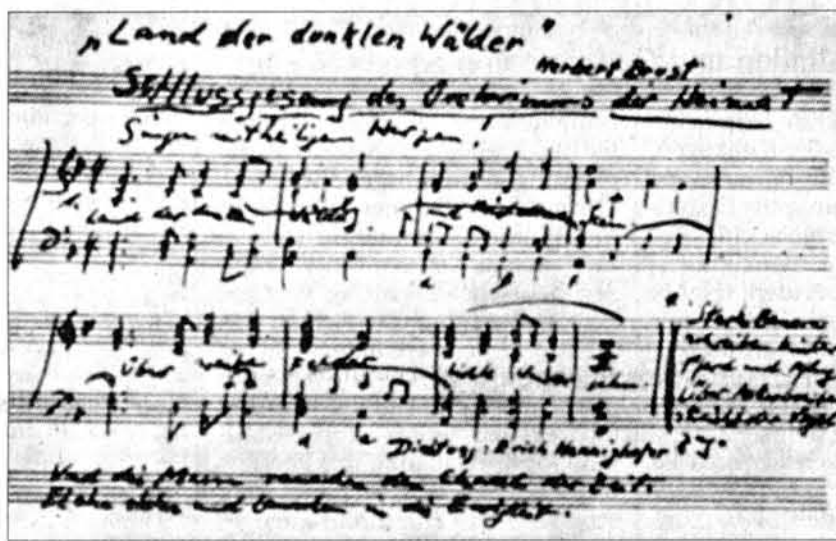 „Land der dunklen Wälder"
Herbert Brust
Schlussgesang des Oratoriums der Heimat
Singen mit heiligem Herzen!
Land der dunklen Wälder und
über weite Felder
lichte Wunder
Starke Bauern
schreiten hinter
Pferd und Pflug
über
Dichtung: Erich Hannighofer
Und die Meere rauschen den Choral der Zeit.
Elche stehn und lauschen in die Ewigkeit.